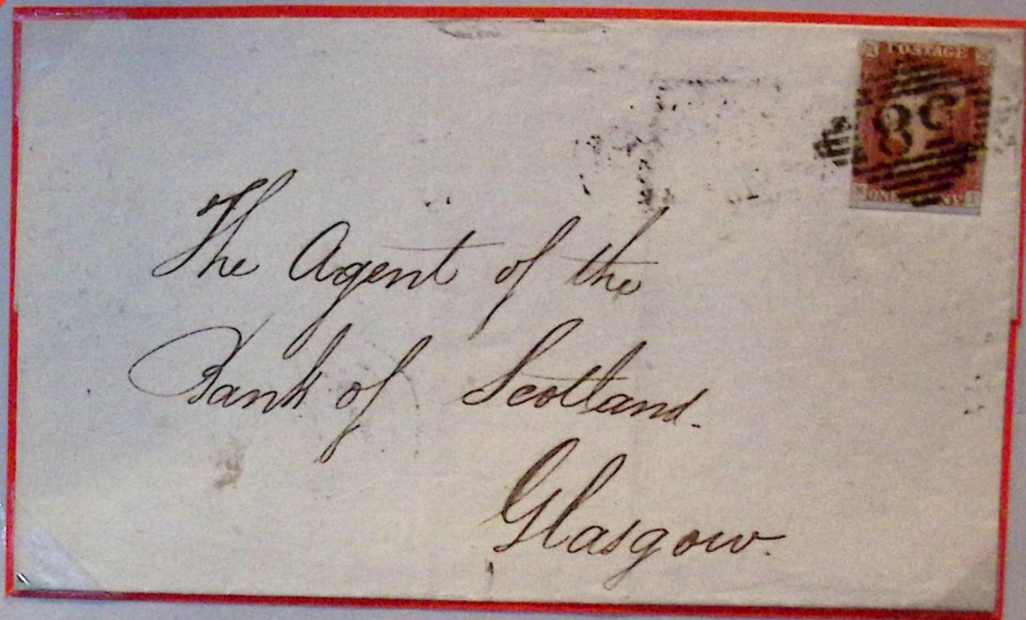 POSTAGE
58
ONE PENNY
The Agent of the
Bank of Scotland.
Glasgow.